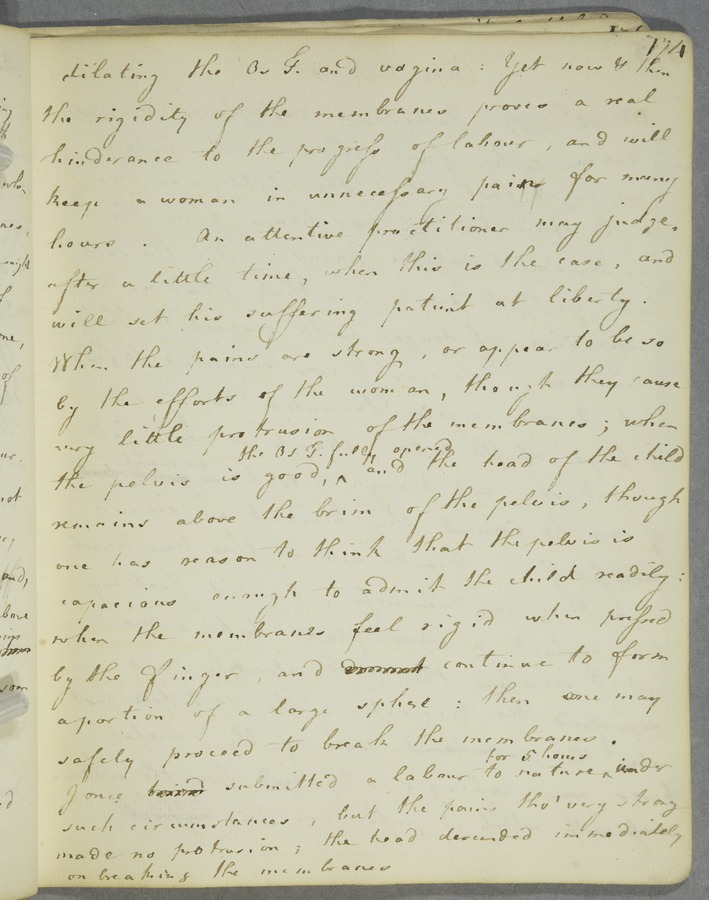 174
dilating the Os T. and vagina : Yet now & then
the rigidity of the membranes proves a real
hinderance to the progress of labour, and will
keep a woman in unnecessary pains for many
hours . An attentive practitioner may judge,
after a little time, when this is the case, and
will set his suffering patient at liberty.
When the pains are strong, or appear to be so
by the efforts of the woman, though they cause
very little protrusion of the membranes ; when
the Os T. fully opened
the pelvis is good, ^ and the head of the child
remains above the brim of the pelvis, though
one has reason to think that the pelvis is
capacious enough to admit the child readily :
when the membranes feel rigid when pressed
by the finger, and continue to form
a portion of a large sphere : then one may
safely proceed to break the membranes .
for 5 hours
I once submitted a labour to nature ^ under
such circumstances, but the pains tho' very strong
made no protrusion ; the head descended immediately
on breaking the membranes